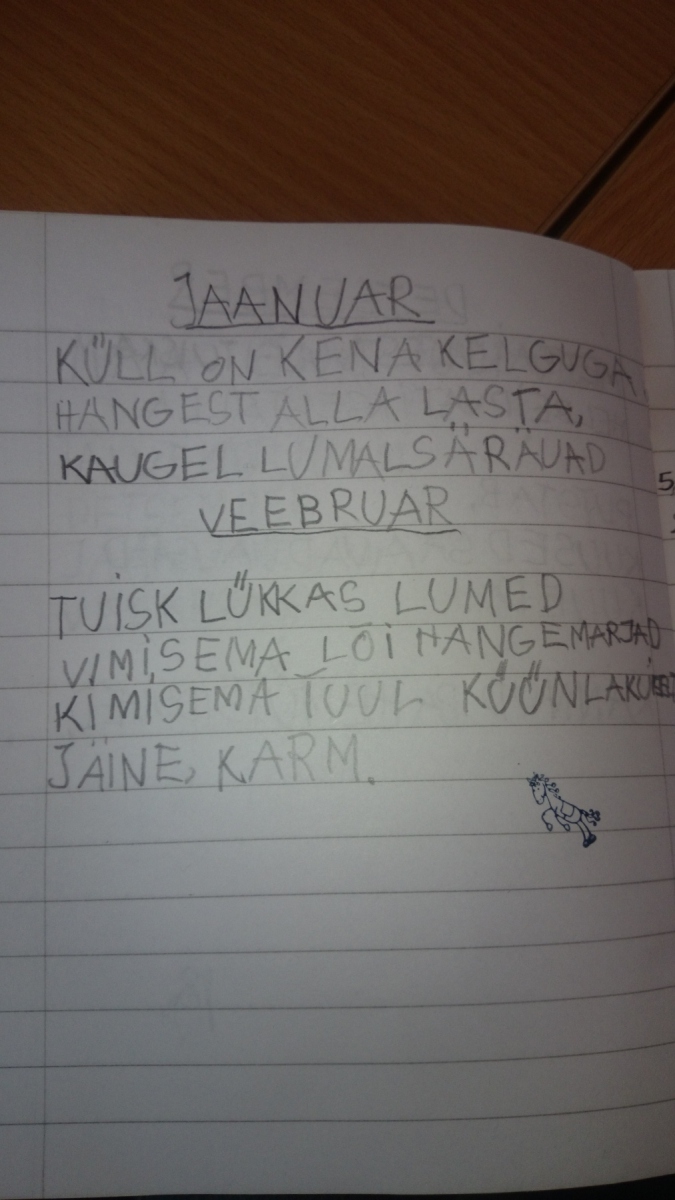 JAANUAR
KÜLL ON KENA KELGUGA
HANGEST ALLA LASTA,
KAUGEL LUMAL SÄRAVAD
VEEBRUAR
TUISK LÜKKAS LUMED
VIMISEMA LÕI HANGEMARJAD
KIMISEMA TUUL KÜÜNLAKUEEL
JÄINE, KARM.
5